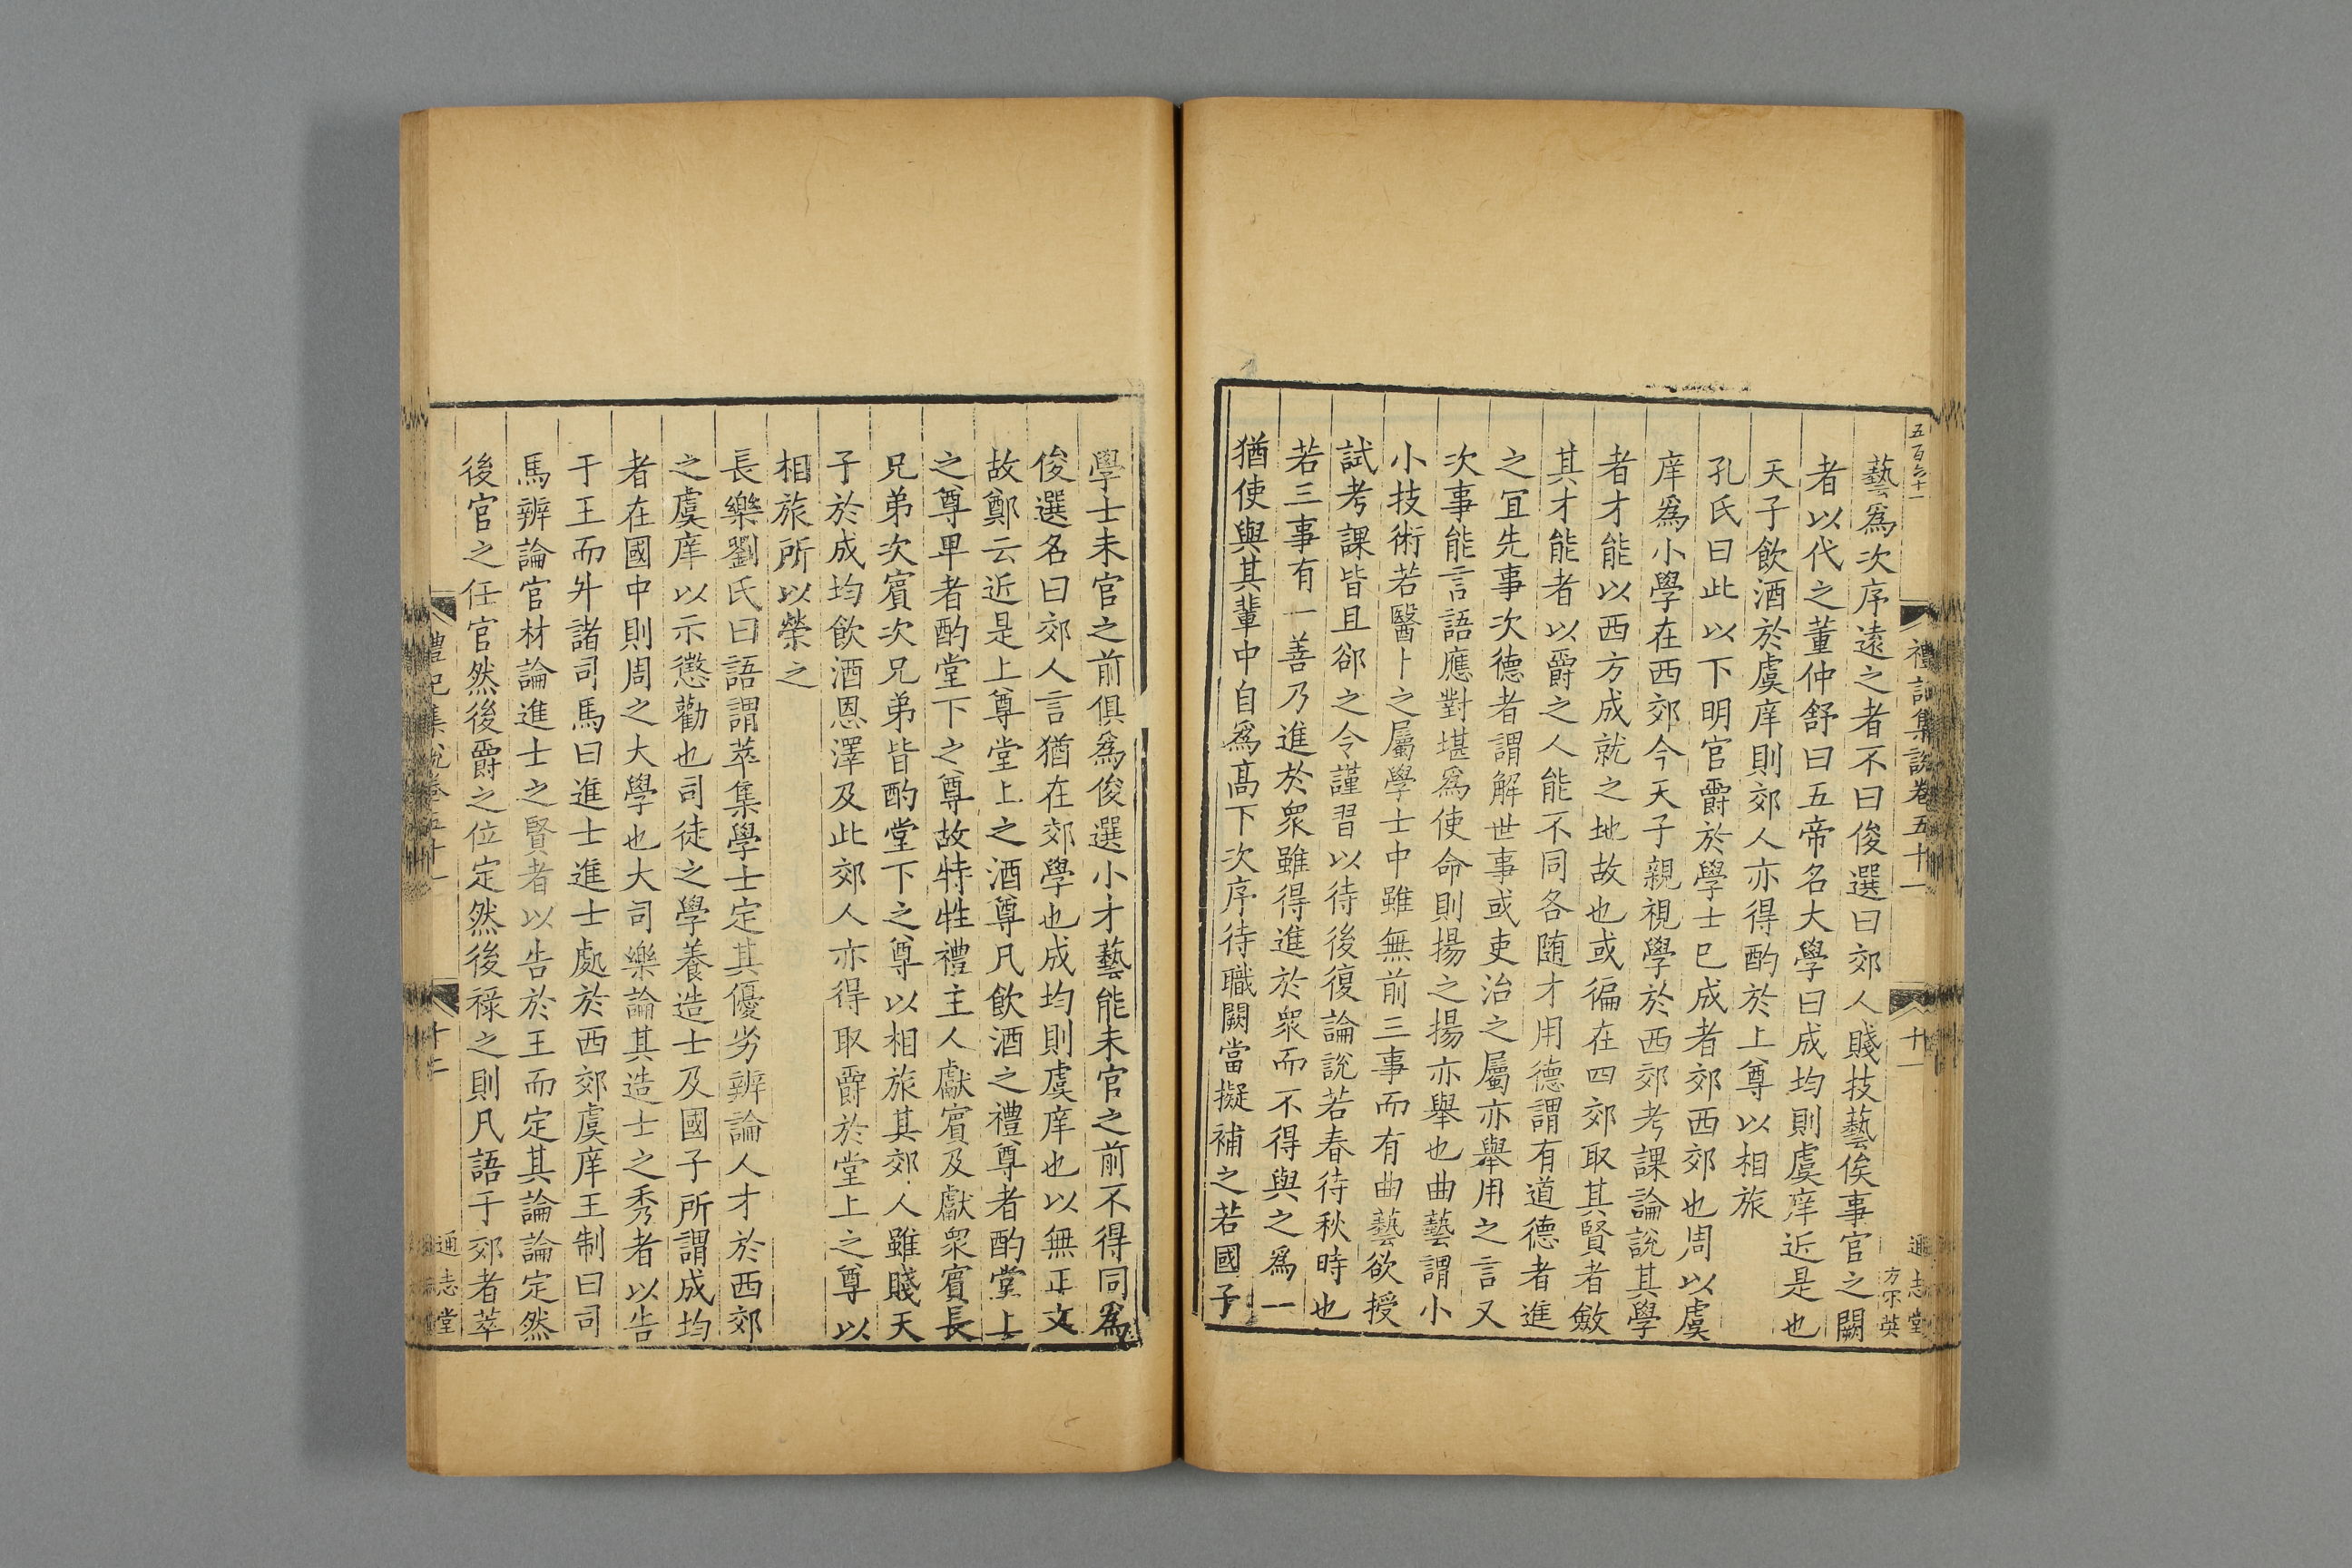 五百六十一
禮記集說卷五十一
十一
通志堂
方不英
藝爲次序遠之者不曰俊選曰郊人賤技藝俟事官之闕
者以代之董仲舒曰五帝名大學曰成均則虞庠近是也
天子飲酒於虞庠則郊人亦得酌於上尊以相旅
孔氏曰此以下明官爵於學士已成者郊西郊也周以虞
庠爲小學在西郊今天子親視學於西郊考課論說其學
者才能以西方成就之地故也或徧在四郊取其賢者斂
其才能者以爵之人能不同各随才用德謂有道德者進
之宜先事次德者謂解世事或吏治之屬亦舉用之言又
次事能言語應對堪爲使命則揚之揚亦舉也曲藝謂小
小技術若醫卜之屬學士中雖無前三事而有曲藝欲授
試考課皆且郤之令謹習以待後復論說若春待秋時也
若三事有一善乃進於衆雖得進於衆而不得與之爲一
猶使與其輩中自爲髙下次序待職闕當擬補之若國子
學士未官之前俱爲俊選小才藝能未官之前不得同爲
俊選名曰郊人言猶在郊學也成均則虞庠也以無正文
故鄭云近是上尊堂上之酒尊凡飲酒之禮尊者酌堂上
之尊卑者酌堂下之尊故特牲禮主人獻賓及獻衆賓長
兄弟次賓次兄弟皆酌堂下之尊以相旅其郊人雖賤天
子於成均飲酒恩澤及此郊人亦得取爵於堂上之尊以
相旅所以榮之
長樂劉氏曰語謂萃集學士定其優劣辨論人才於西郊
之虞庠以示懲勸也司徒之學養造士及國子所謂成均
者在國中則周之大學也大司樂論其造士之秀者以告
于王而升諸司馬曰進士進士處於西郊虞庠王制曰司
馬辨論官材論進士之賢者以告於王而定其論論定然
後官之任官然後爵之位定然後祿之則凡語于郊者萃
禮記集說卷五十一
十二
通志堂